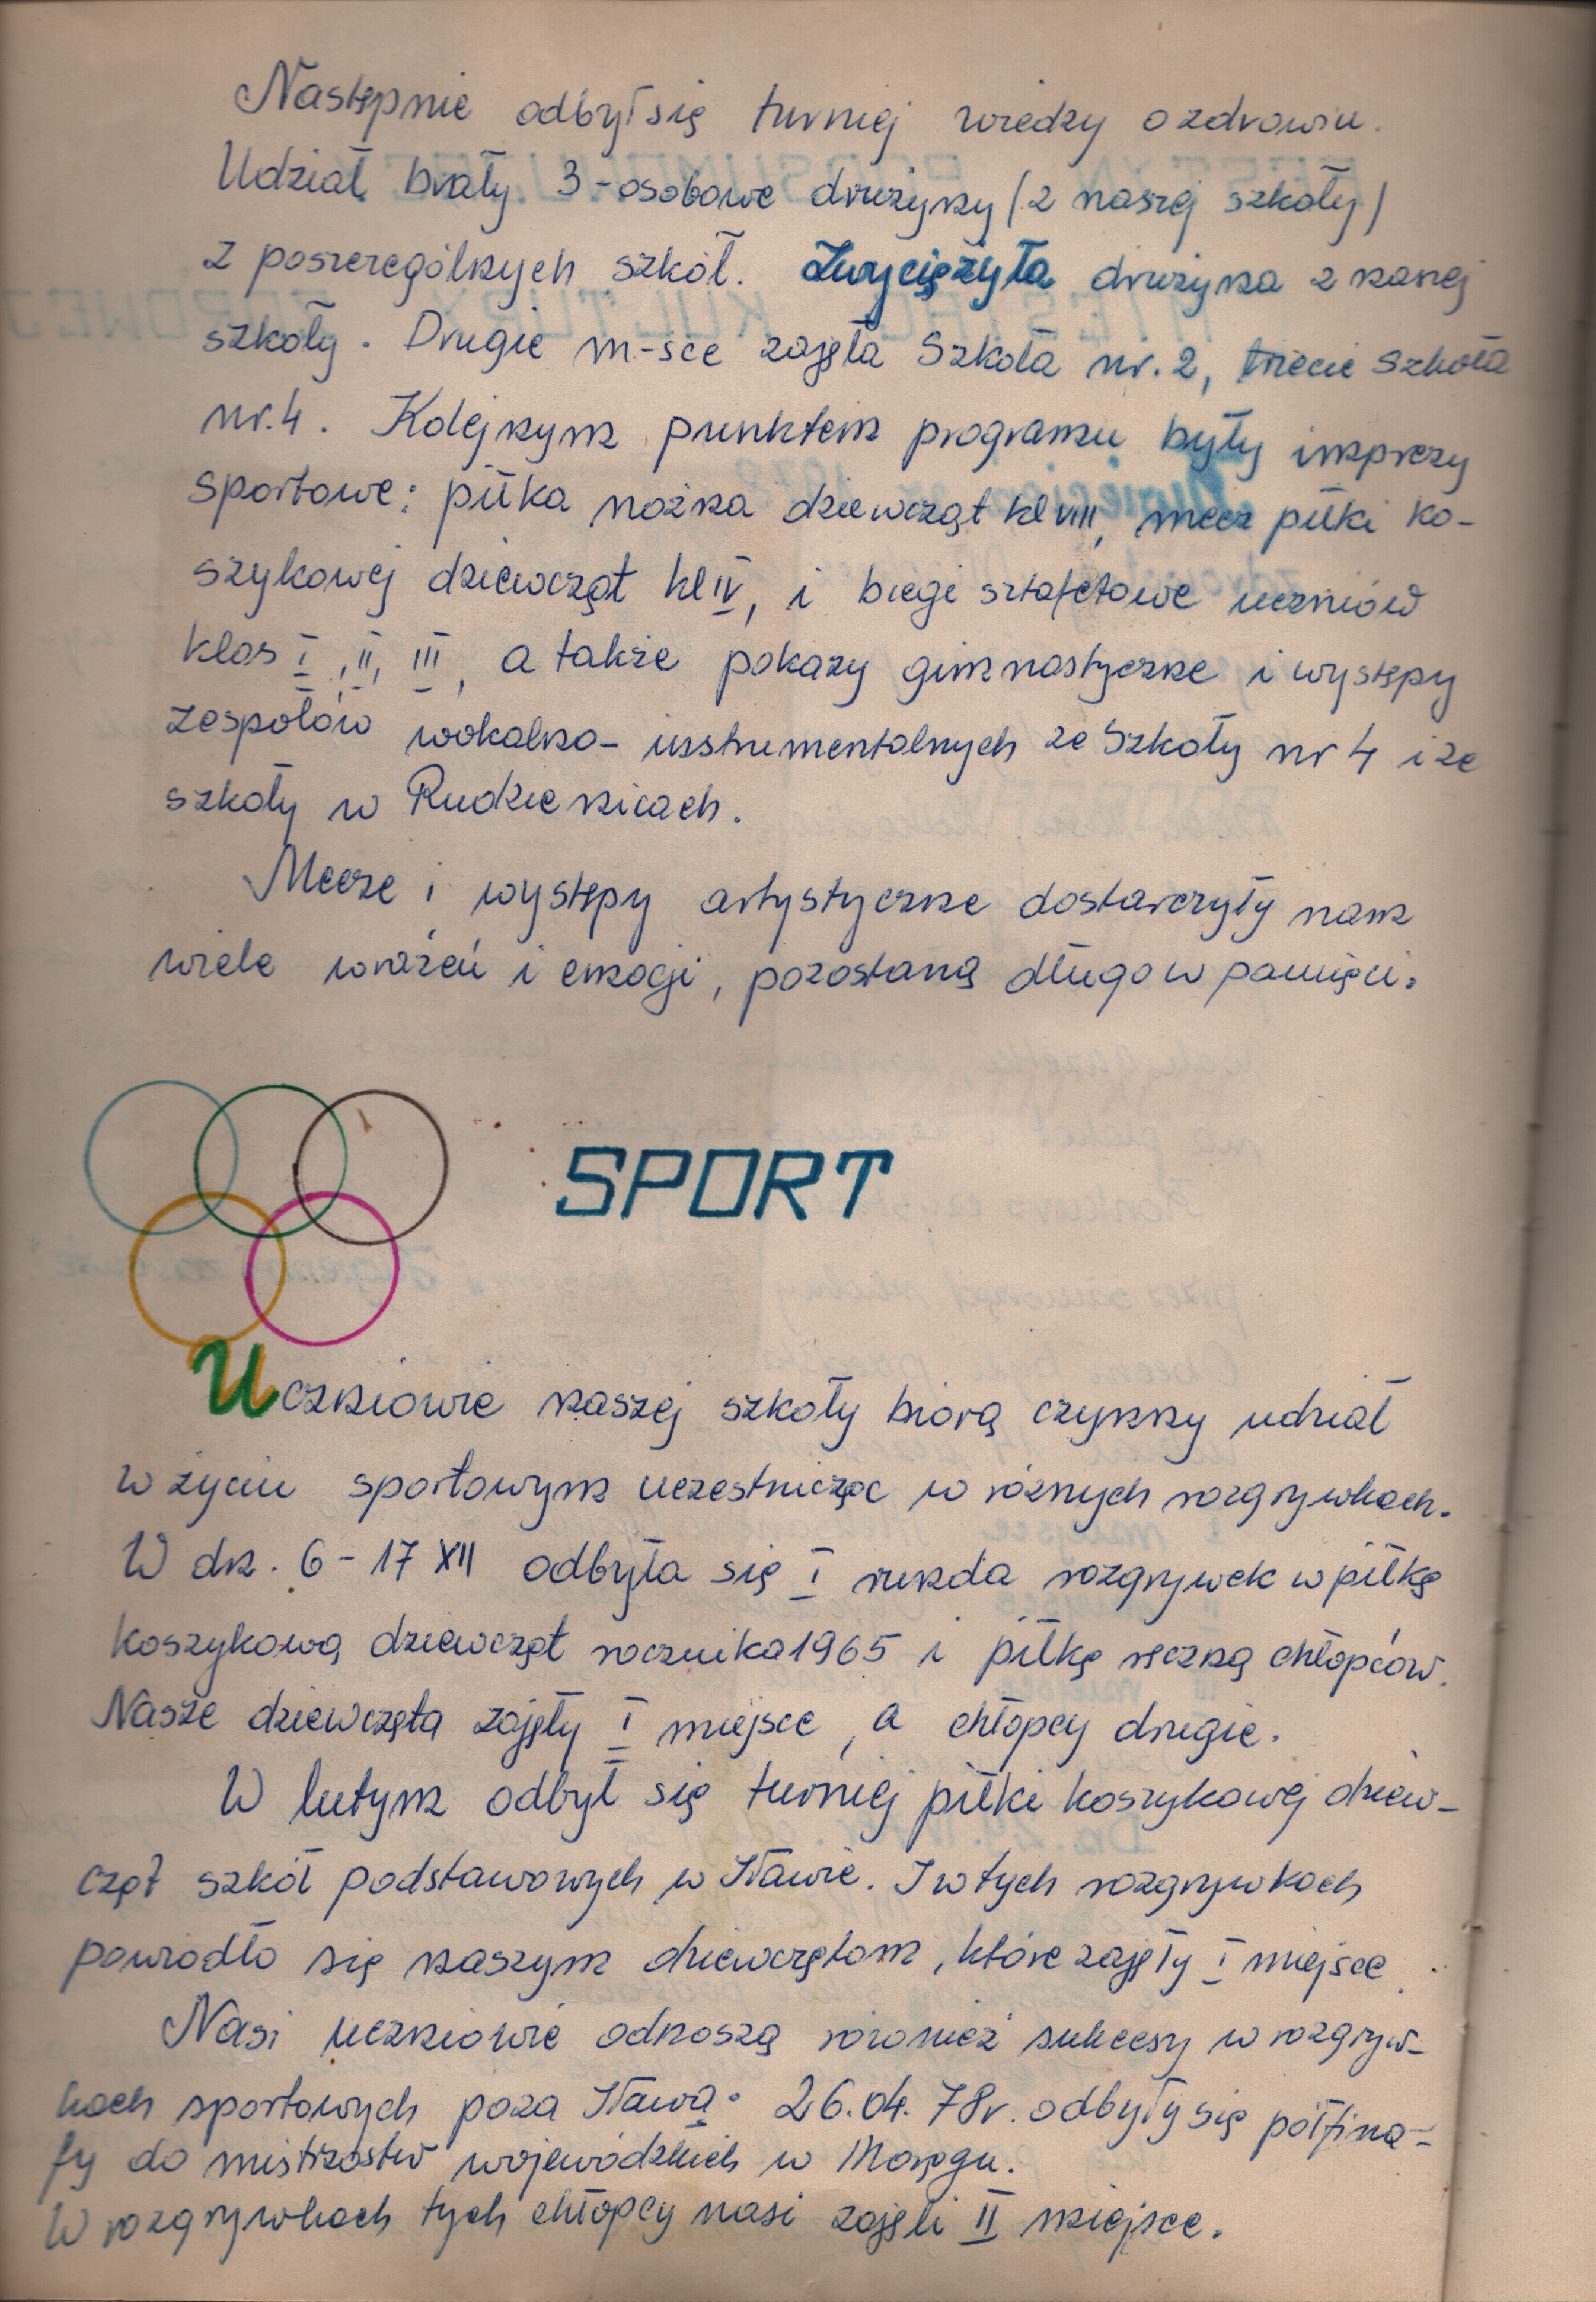 Następnie odbył się turniej wiedzy o zdrowiu.
Udział brały 3-osobowe drużyny (z naszej szkoły)
z poszczególnych szkół. Zwyciężyła drużyna z naszej
szkoły. Drugie m-sce zajęła Szkoła nr. 2, trzecie Szkoła
nr. 4. Kolejnym punktem programu były imprezy
sportowe: piłka nożna dziewcząt kl VIII, mecz piłki ko-
szykowej dziewcząt kl IV, i biegi sztafetowe uczniów
klas I, II, III, a także pokazy gimnastyczne i występy
zespołów wokalno-instrumentalnych ze Szkoły nr 4 i ze
szkoły w Rudzienicach.
Mecze i występy artystyczne dostarczyły nam
wiele wrażeń i emocji, pozostaną długo w pamięci.
SPORT
Uczniowie naszej szkoły biorą czynny udział
w życiu sportowym uczestnicząc w różnych rozgrywkach.
W dn. 6-17 XII odbyła się I runda rozgrywek w piłkę
koszykową dziewcząt rocznika 1965 i piłkę ręczną chłopców.
Nasze dziewczęta zajęły I miejsce, a chłopcy drugie.
W lutym odbył się turniej piłki koszykowej dziew-
cząt szkół podstawowych w Iławie. I w tych rozgrywkach
powiodło się naszym dziewczętom, które zajęły I miejsce.
Nasi uczniowie odnoszą również sukcesy w rozgryw-
kach sportowych poza Iławą. 26.04.78r. odbyły się półfina-
ły do mistrzostw wojewódzkich w Morągu.
W rozgrywkach tych chłopcy nasi zajęli II miejsce.